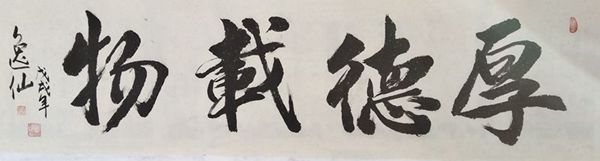 厚德載物
戊戌年
逸仙